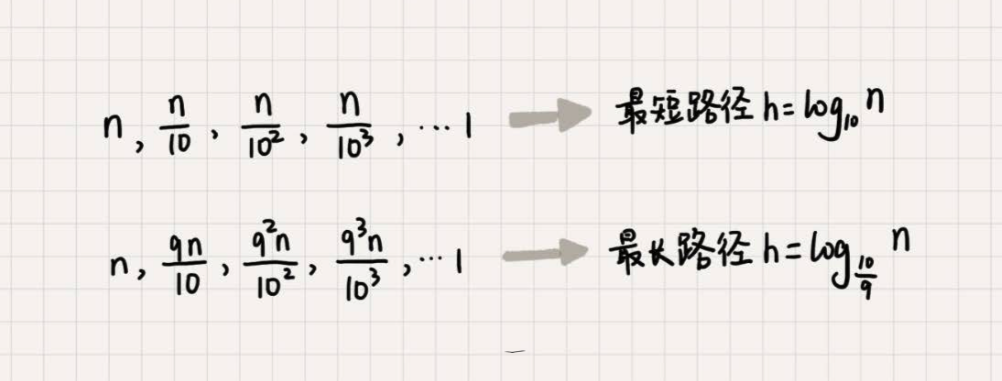 n, n/10, n/10², n/10³, ⋯ 1 → 最短路径 h = log₁₀ n
n, 9n/10, 9²n/10², 9³n/10³, ⋯ 1 → 最长路径 h = log_(10/9) n